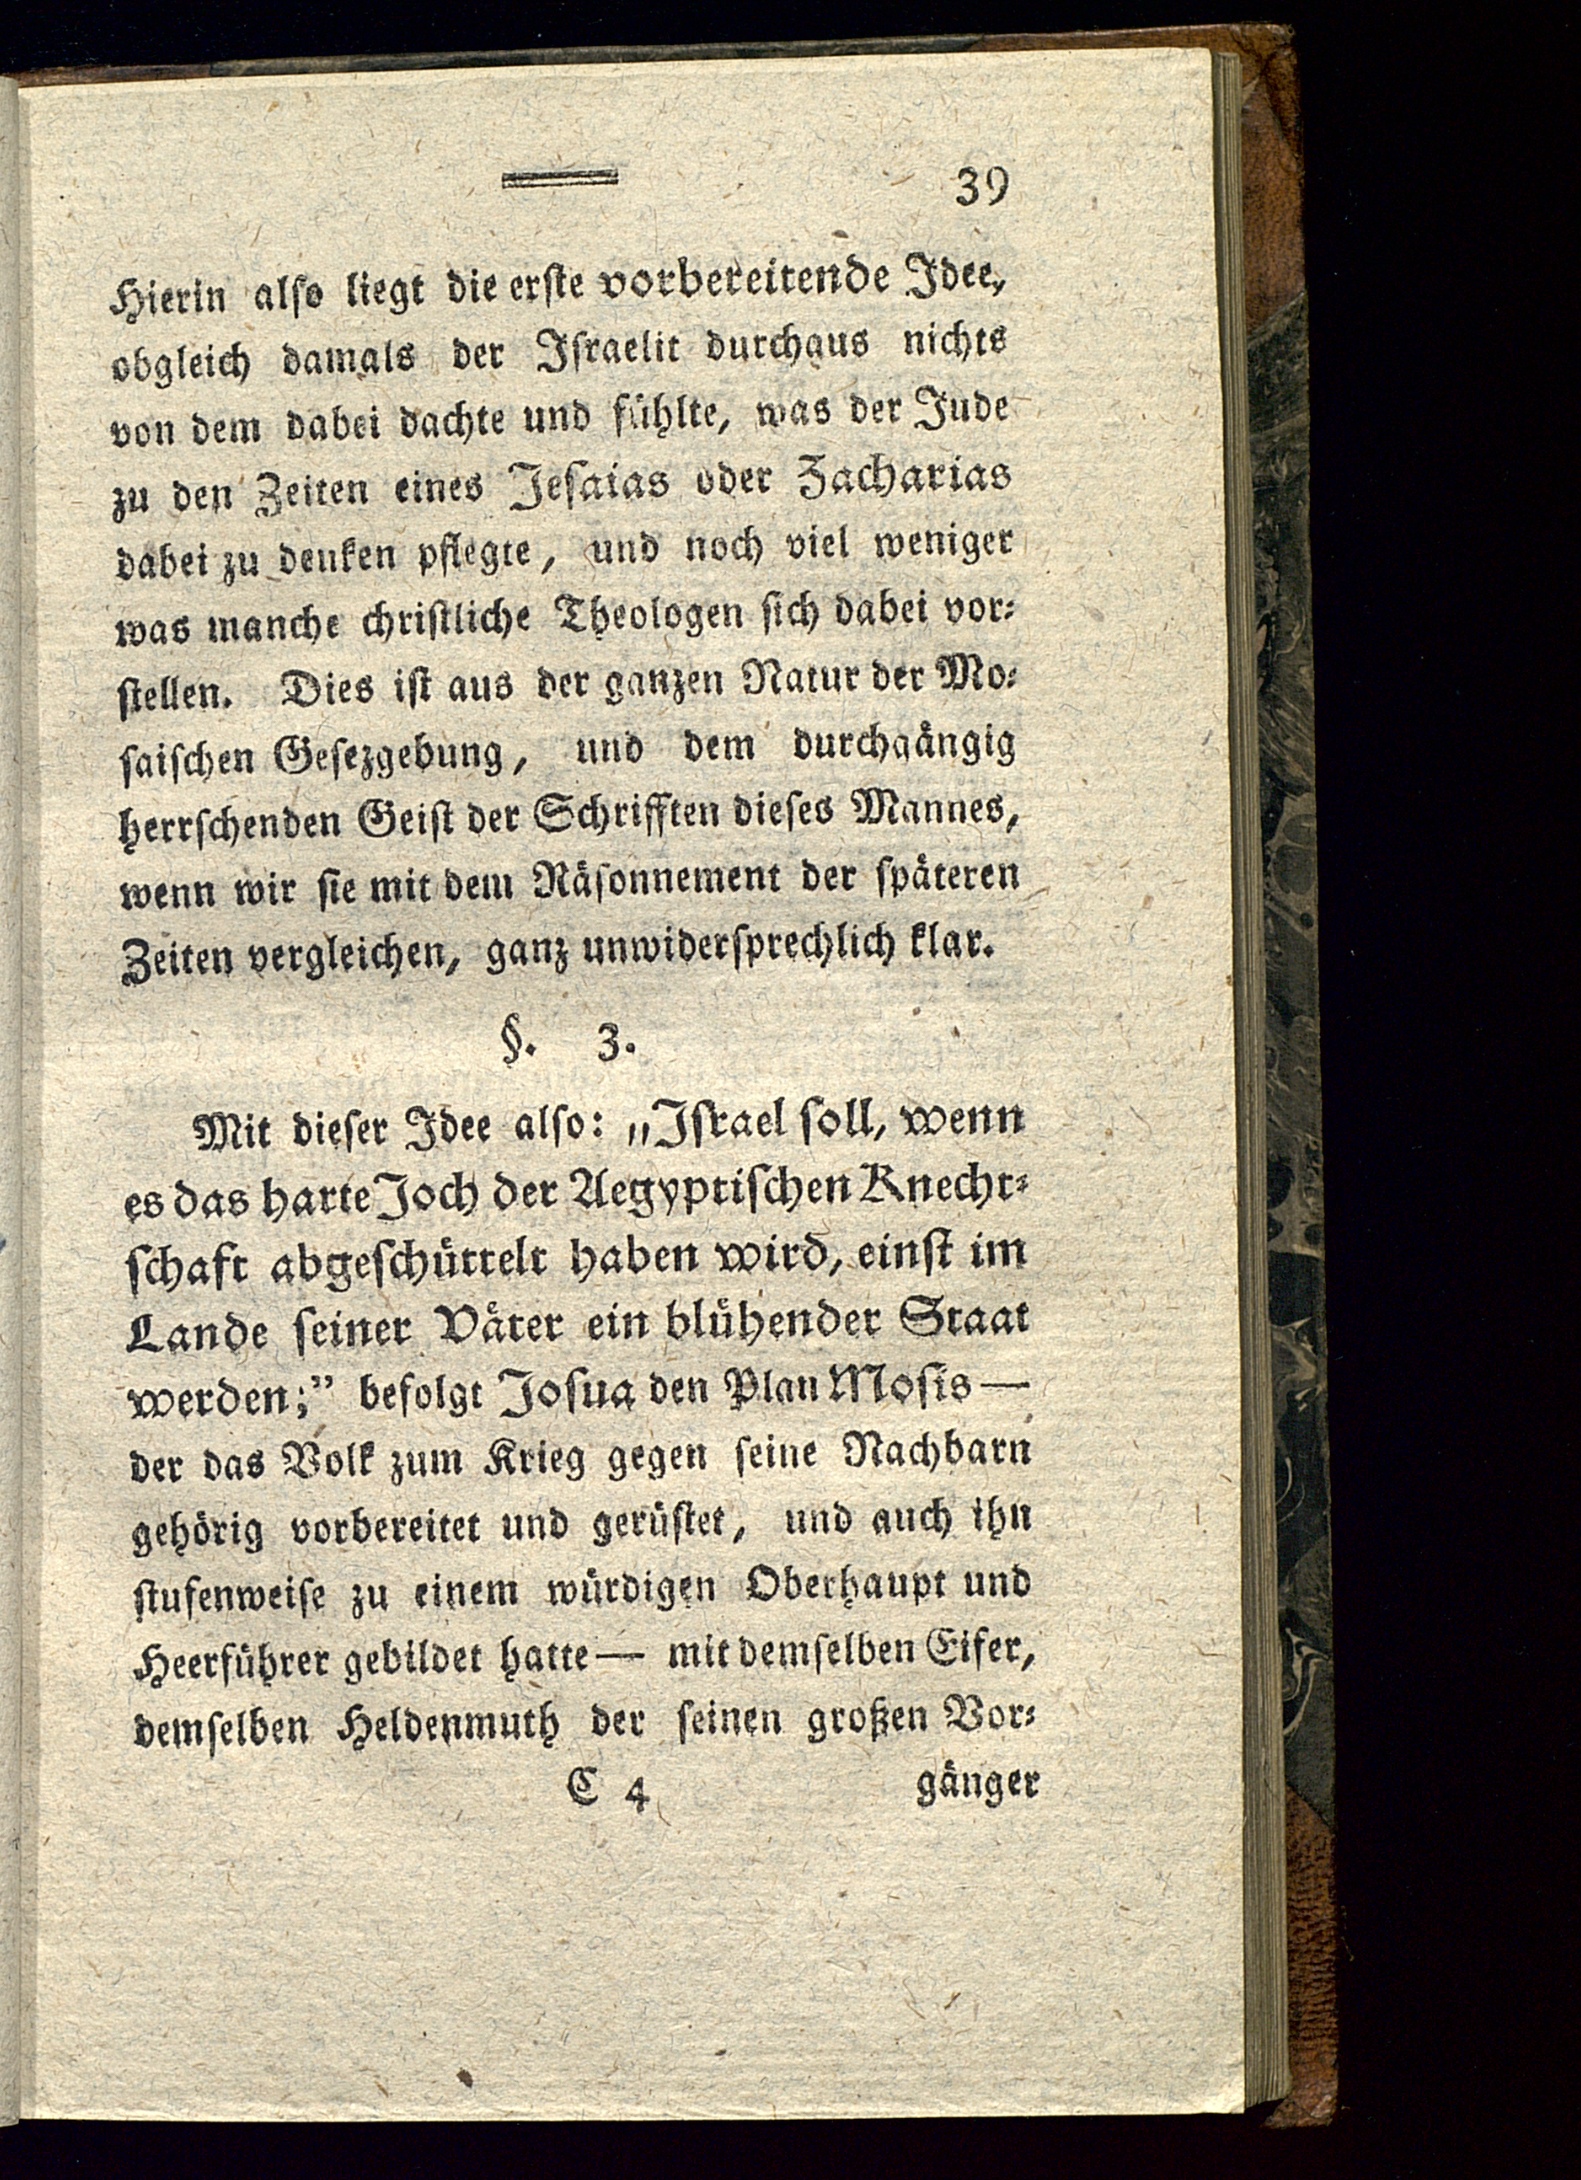 39
Hierin alſo liegt die erſte vorbereitende Idee,
obgleich damals der Iſraelit durchaus nichts
von dem dabei dachte und fühlte, was der Jude
zu den Zeiten eines Jeſaias oder Zacharias
dabei zu denken pflegte, und noch viel weniger
was manche chriſtliche Theologen ſich dabei vor⸗
ſtellen. Dies iſt aus der ganzen Natur der Mo⸗
ſaiſchen Geſezgebung, und dem durchgängig
herrſchenden Geiſt der Schrifften dieſes Mannes,
wenn wir ſie mit dem Räſonnement der ſpäteren
Zeiten vergleichen, ganz unwiderſprechlich klar.
§. 3.
Mit dieſer Idee alſo: „Iſrael ſoll, wenn
es das harte Joch der Aegyptiſchen Knecht⸗
ſchaft abgeſchüttelt haben wird, einſt im
Lande ſeiner Väter ein blühender Staat
werden;” befolgt Joſua den Plan Moſis —
der das Volk zum Krieg gegen ſeine Nachbarn
gehörig vorbereitet und gerüſtet, und auch ihn
ſtufenweiſe zu einem würdigen Oberhaupt und
Heerführer gebildet hatte — mit demſelben Eifer,
demſelben Heldenmuth der ſeinen großen Vor⸗
C 4 gänger